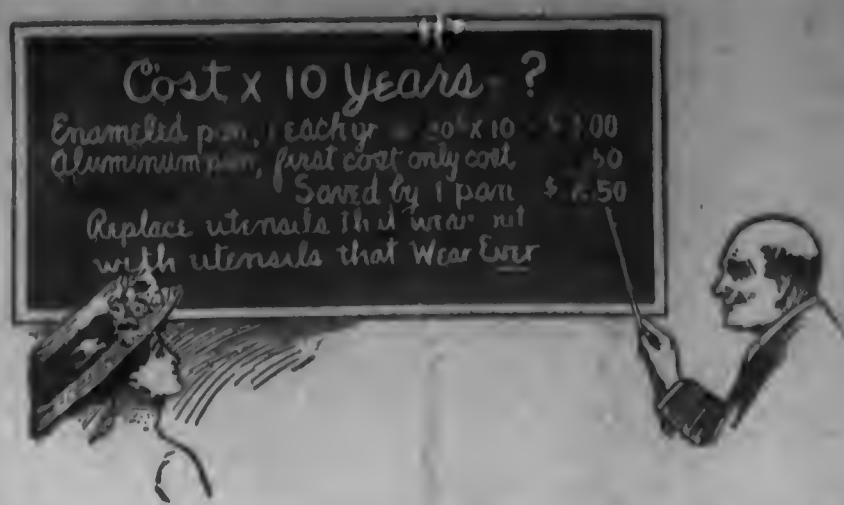 Cost x 10 Years - ?
Enameled pan, each yr x 10
Aluminum pan, first cost only cost
Saved by 1 pan
Replace utensils that wear out
with utensils that Wear Ever